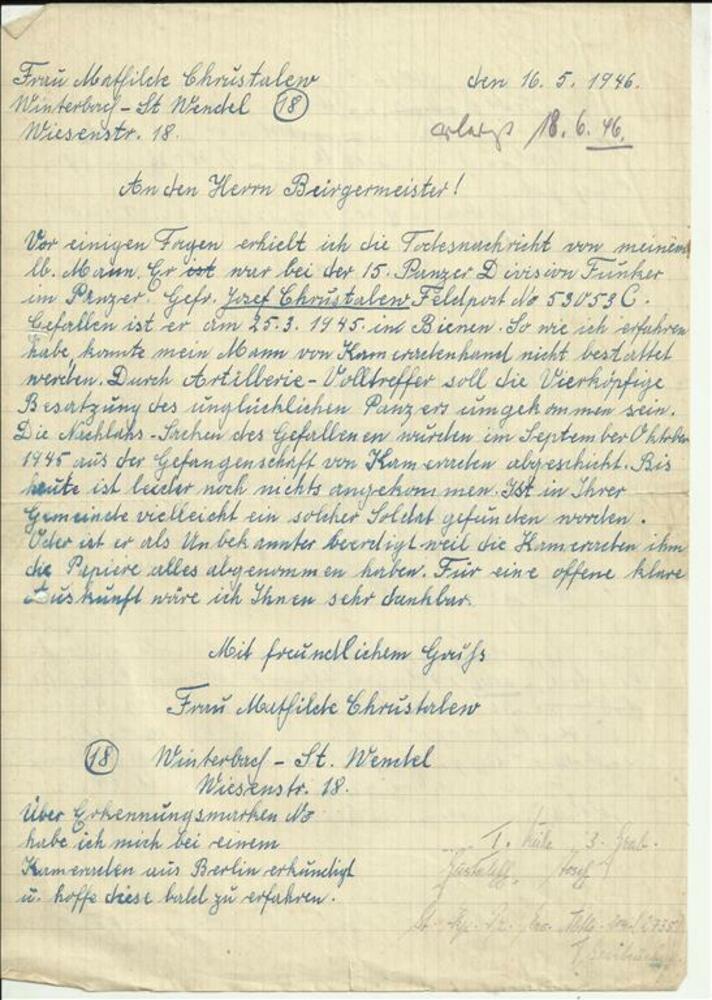 Frau Mathilde Chrustalew den 16. 5. 1946.
Winterbach - St Wendel (18)
Wiesenstr. 18. 18. 6. 46.
An den Herrn Beürgermeister!
Vor einigen Tagen erhielt ich die Todesnachricht von meinem
lb. Mann. Er ist war bei der 15. Panzer Division Funker
im Panzer. Gefr. Josef Chrustalew Feldpost No 53053 C.
Gefallen ist er am 25.3. 1945 in Bienen. So wie ich erfahren
habe, konnte mein Mann von Kameradenhand nicht bestattet
werden. Durch Artillerie-Volltreffer soll die Vierköpfige
Besatzung des unglücklichen Panzers umgekommen sein.
Die Nachlass-Sachen des Gefallenen wurden im September Oktober
1945 aus der Gefangenschaft von Kameraden abgeschickt. Bis
heute ist leider noch nichts angekommen. Ist in Ihrer
Gemeinde vielleicht ein solcher Soldat gefunden worden.
Oder ist er als Unbekannter beerdigt weil die Kameraden ihm
die Papiere alles abgenommen haben. Für eine offene klare
Auskunft wäre ich Ihnen sehr dankbar.
Mit freundlichem Gruß
Frau Mathilde Chrustalew
(18) Winterbach - St. Wendel
Wiesenstr. 18.
Über Erkennungsmarken No
habe ich mich bei einem
Kameraden aus Berlin erkundigt
u. hoffe diese bald zu erfahren.